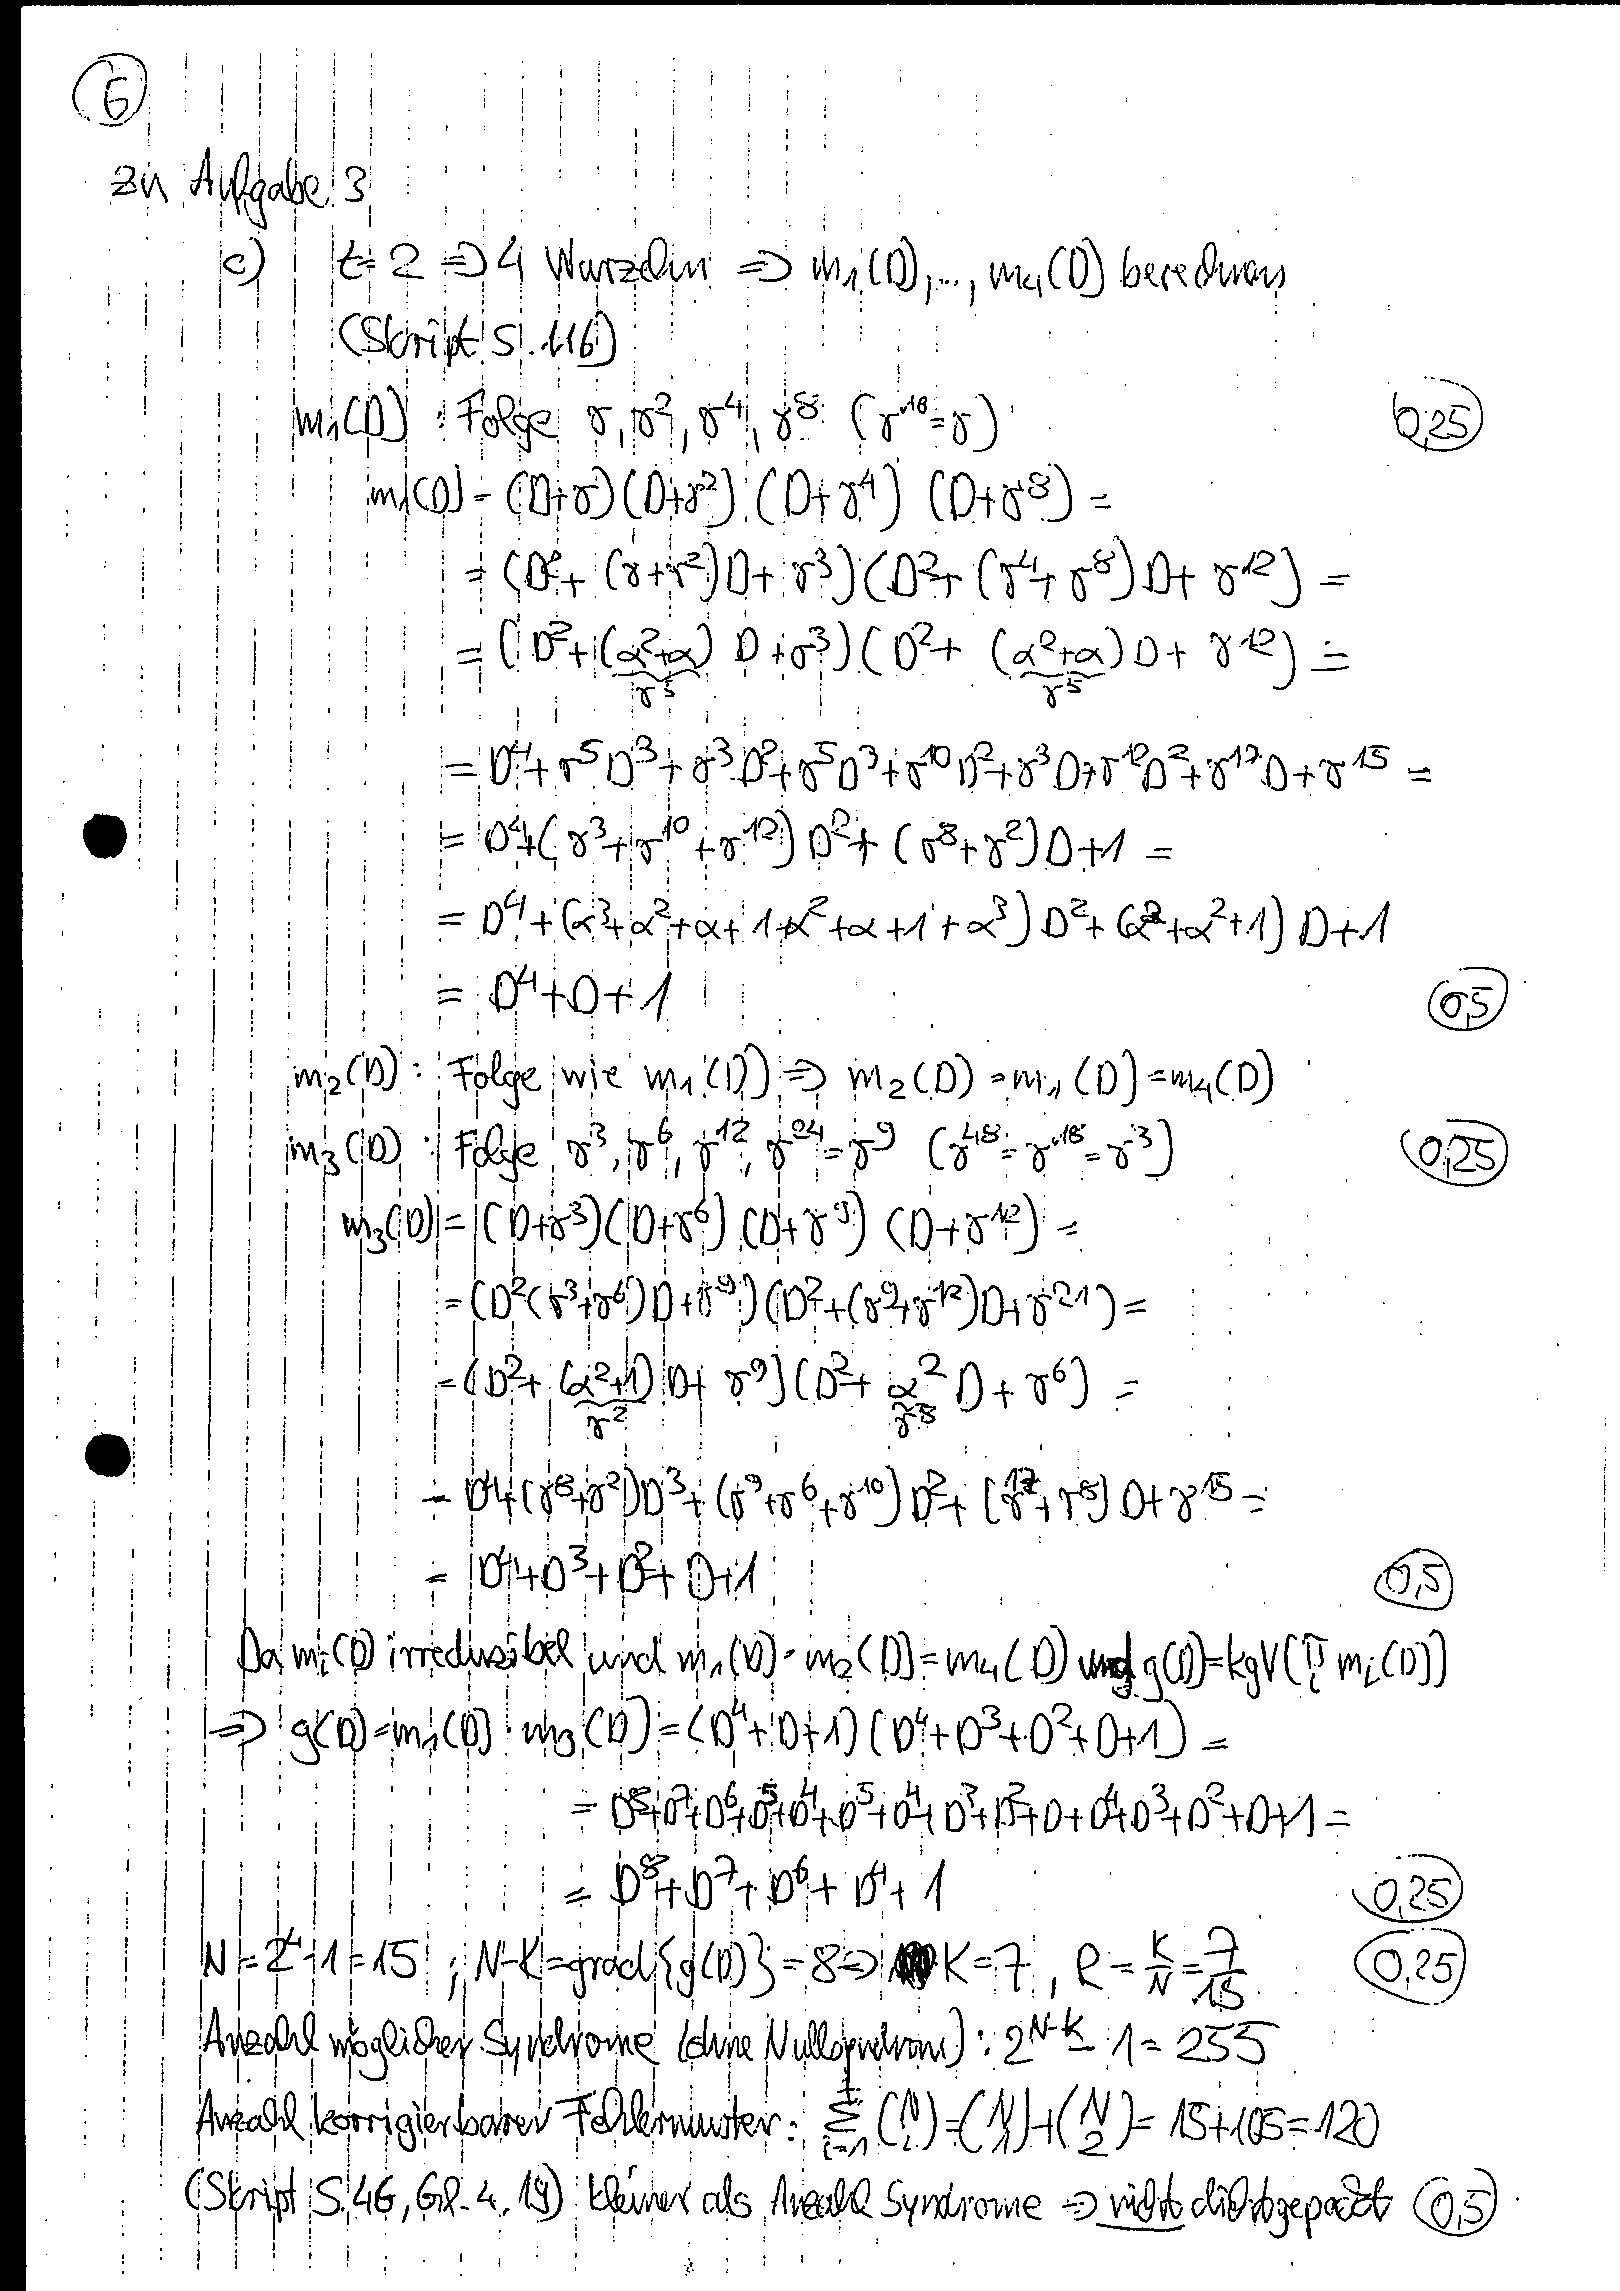 6
zu Aufgabe 3
c) t=2 ⇒ 4 Wurzeln ⇒ m₁(D),..., m₄(D) berechnen
(Skript S. 116)
m₁(D) : Folge γ, γ², γ⁴, γ⁸ (γ¹⁶=γ) 0,25
m₁(D) = (D+γ)(D+γ²)(D+γ⁴)(D+γ⁸) =
= (D²+(γ+γ²)D+γ³)(D²+(γ⁴+γ⁸)D+γ¹²) =
= (D²+(α²+α)D+γ³)(D²+(α²+α)D+γ¹²) =
γ⁵ γ⁵
= D⁴+γ⁵D³+γ³D²+γ⁵D³+γ¹⁰D²+γ³D+γ¹²D²+γ¹⁷D+γ¹⁵ =
= D⁴+(γ³+γ¹⁰+γ¹²)D²+(γ⁸+γ²)D+1 =
= D⁴+(α³+α²+α+1+α²+α+1+α³)D²+(α²+α²+1)D+1
= D⁴+D+1 0,5
m₂(D) : Folge wie m₁(D) ⇒ m₂(D)=m₁(D)=m₄(D)
m₃(D) : Folge γ³, γ⁶, γ¹², γ²⁴=γ⁹ (γ⁴⁸=γ¹⁸=γ³) 0,25
m₃(D) = (D+γ³)(D+γ⁶)(D+γ⁹)(D+γ¹²) =
= (D²(γ³+γ⁶)D+γ⁹)(D²+(γ⁹+γ¹²)D+γ²¹) =
= (D²+(α²+1)D+γ⁹)(D²+α²D+γ⁶) =
γ² γ⁸
= D⁴+(γ⁸+γ²)D³+(γ⁹+γ⁶+γ¹⁰)D²+(γ¹⁷+γ⁸)D+γ¹⁵ =
= D⁴+D³+D²+D+1 0,5
Da mᵢ(D) irreduzibel und m₁(D)=m₂(D)=m₄(D) und g(D)=kgV(∏ᵢ mᵢ(D))
⇒ g(D)=m₁(D)·m₃(D)=(D⁴+D+1)(D⁴+D³+D²+D+1) =
= D⁸+D⁷+D⁶+D⁵+D⁴+D⁵+D⁴+D³+D²+D+D⁴+D³+D²+D+1 =
= D⁸+D⁷+D⁶+D⁴+1 0,25
N=2⁴-1=15 ; N-K=grad{g(D)}=8 ⇒ K=7 , R=K/N=7/15 0,25
Anzahl möglicher Syndrome (ohne Nullsyndrom) : 2^(N-K) - 1 = 255
Anzahl korrigierbarer Fehlermuster : Σ_{i=1}^{t} (N i) = (N 1)+(N 2) = 15+105=120
(Skript S. 46, Gl. 4.19) kleiner als Anzahl Syndrome ⇒ nicht dichtgepackt 0,5